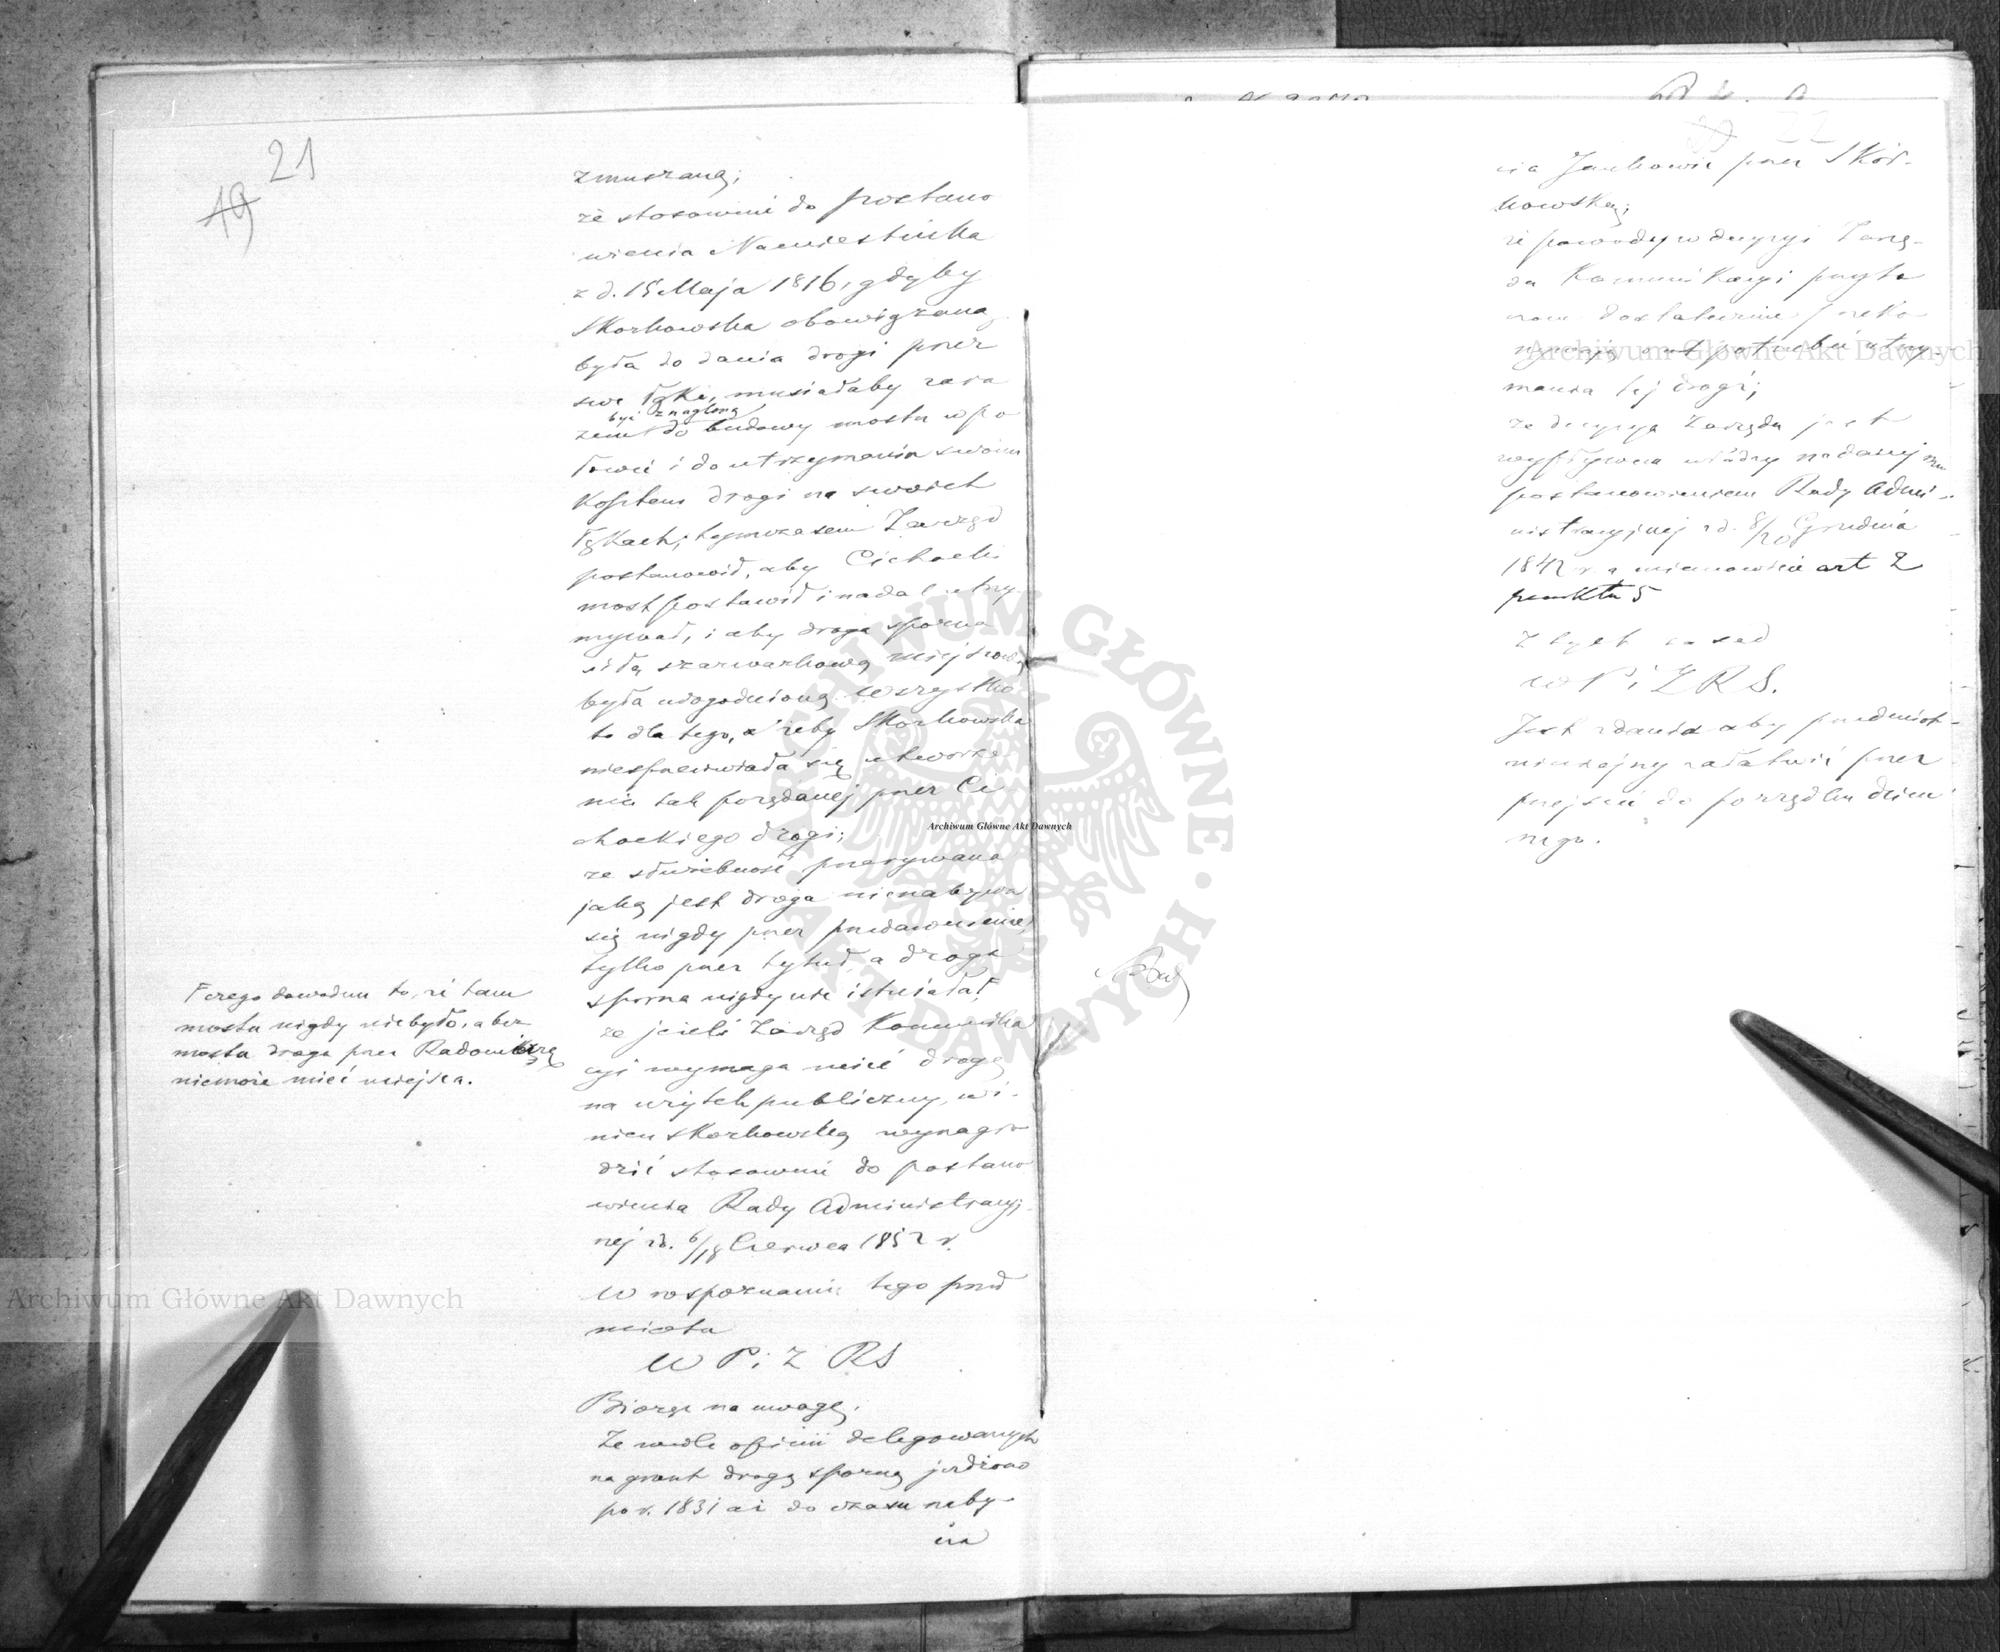 21
19
zmuszaną;
że stosownie do postano
wienia Namiestnika
z d. 15 Maja 1816, gdyby
Skorkowska obowiązaną
była do dania drogi przez
swe łąki, musiałaby zara
być znagloną
zem do budowy mostu w po
łowie i do utrzymania swoim
kosztem drogi na swoich
łąkach; tymczasem Zarząd
postanowił, aby Cichocki
most postawił i nadal utrzy
mywał, i aby droga sporna
siłą szarwarkową miejscową
była uwogodnioną. Wszystko
to dla tego, żeby Skorkowska
niesprzeciwiała się utworze
niu tak pożądanej przez Ci
chockiego drogi;
że służebność przerywana
jaką jest droga nienabywa
się nigdy przez przedawnienie,
tylko przez tytuł, a droga
sporna nigdy nie istniała Γ
że jeżeli Zarząd Komunika
cyi wymaga mieć drogę
na użytek publiczny, wi-
nien Skorkowską wynagro
dzić stosownie do postano
wienia Rady Administracyj
nej z d. 6/18 Czerwca 1852 r.
W rozpoznaniu tego przed
miotu
W P i Z RS
Biorąc na uwagę,
Że wedle opinii delegowanych
na grunt drogą sporną jeżdżono
po r. 1831 aż do czasu naby-
cia
Γ czego dowodem to, że tam
mostu nigdy niebyło, a bez
mostu droga przez Radomkę
niemoże mieć miejsca.
22
cia Jankowic przez Skor-
kowską;
że powody w decyzyi Zarzą-
du Komunikacyi przyto
czone dostatecznie przeko
nywają o potrzebie utrzy-
mania tej drogi;
że decyzya Zarządu jest
wypływem władzy nadanej mu
postanowieniem Rady Admi-
nistracyjnej z d. 8/20 Grudnia
1842 r. a mianowicie art 2
punktu 5
Z tych zasad
W P i Z RS.
Jest zdania aby przedmiot
niniejszy załatwić przez
przejście do porządku dzien
nego.
Archiwum Główne Akt Dawnych
Archiwum Główne Akt Dawnych
Archiwum Główne Akt Dawnych
ARCHIWUM GŁÓWNE AKT DAWNYCH